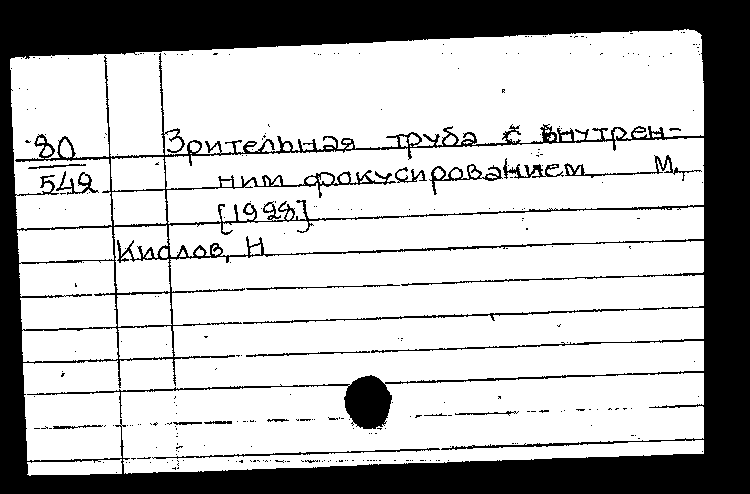 80 Зрительная труба с внутрен-
542 ним фокусированием. М.,
[1928]
Кислов, Н.